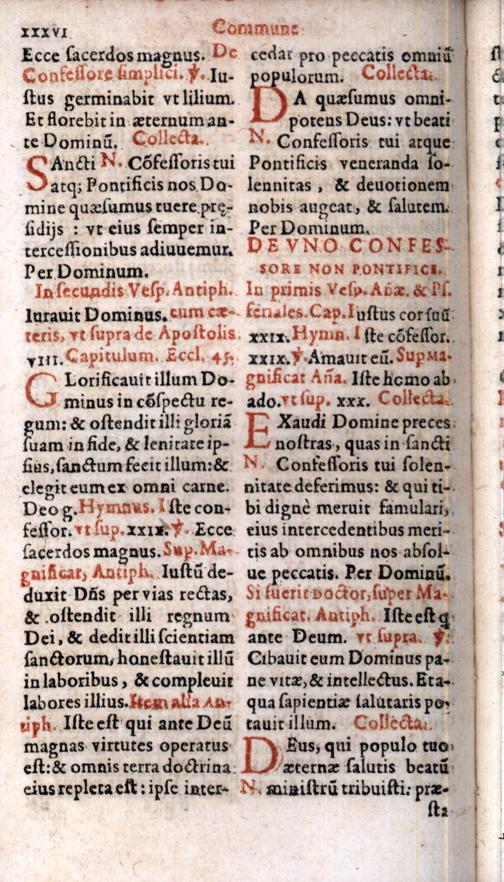 XXXVI Commune
Ecce sacerdos magnus. De
Confessore simplici. ℣. Iu-
stus germinabit vt lilium.
Et florebit in æternum an-
te Dominũ. Collecta.
SAncti N. Cõfessoris tui
atq; Pontificis nos Do-
mine quæsumus tuere pre-
sidijs : vt eius semper in-
tercessionibus adiuuemur.
Per Dominum.
In secundis Vesp. Antiph.
Iurauit Dominus. cum cæ-
teris, vt supra de Apostolis.
VIII. Capitulum. Eccl. 45.
GLorificauit illum Do-
minus in cõspectu re-
gum: & ostendit illi gloriã
suam in fide, & lenitate ip-
sius, sanctum fecit illum: &
elegit eum ex omni carne.
Deo g. Hymnus. Iste con-
fessor. vt sup. XXIX. ℣. Ecce
sacerdos magnus. Sup. Ma-
gnificat, Antiph. Iustũ de-
duxit Dñs per vias rectas,
& ostendit illi regnum
Dei, & dedit illi scientiam
sanctorum, honestauit illũ
in laboribus, & compleuit
labores illius. Item alia An-
tiph. Iste est qui ante Deũ
magnas virtutes operatus
est: & omnis terra doctrina
eius repleta est: ipse inter-
cedat pro peccatis omniũ
populorum. Collecta.
DA quæsumus omni-
potens Deus: vt beati
N. Confessoris tui atque
Pontificis veneranda so-
lennitas, & deuotionem
nobis augeat, & salutem.
Per Dominum.
DE VNO CONFES-
SORE NON PONTIFICE.
In primis Vesp. Añæ. & Ps.
feriales. Cap. Iustus cor suũ
XXIX. Hymn. Iste cõfessor.
XXIX. ℣. Amauit eũ. Sup Ma-
gnificat Aña. Iste homo ab
ado. vt sup. XXX. Collecta.
EXaudi Domine preces
nostras, quas in sancti
N. Confessoris tui solen-
nitate deferimus: & qui ti-
bi dignè meruit famulari,
eius intercedentibus meri-
tis ab omnibus nos absol-
ue peccatis. Per Dominũ.
Si fuerit Doctor, super Ma-
gnificat. Antiph. Iste est q
ante Deum. vt supra. ℣:
Cibauit eum Dominus pa-
ne vitæ, & intellectus. Et a-
qua sapientiæ salutaris po-
tauit illum. Collecta.
DEus, qui populo tuo
æternæ salutis beatũ
N. ministrũ tribuisti: præ-
sta